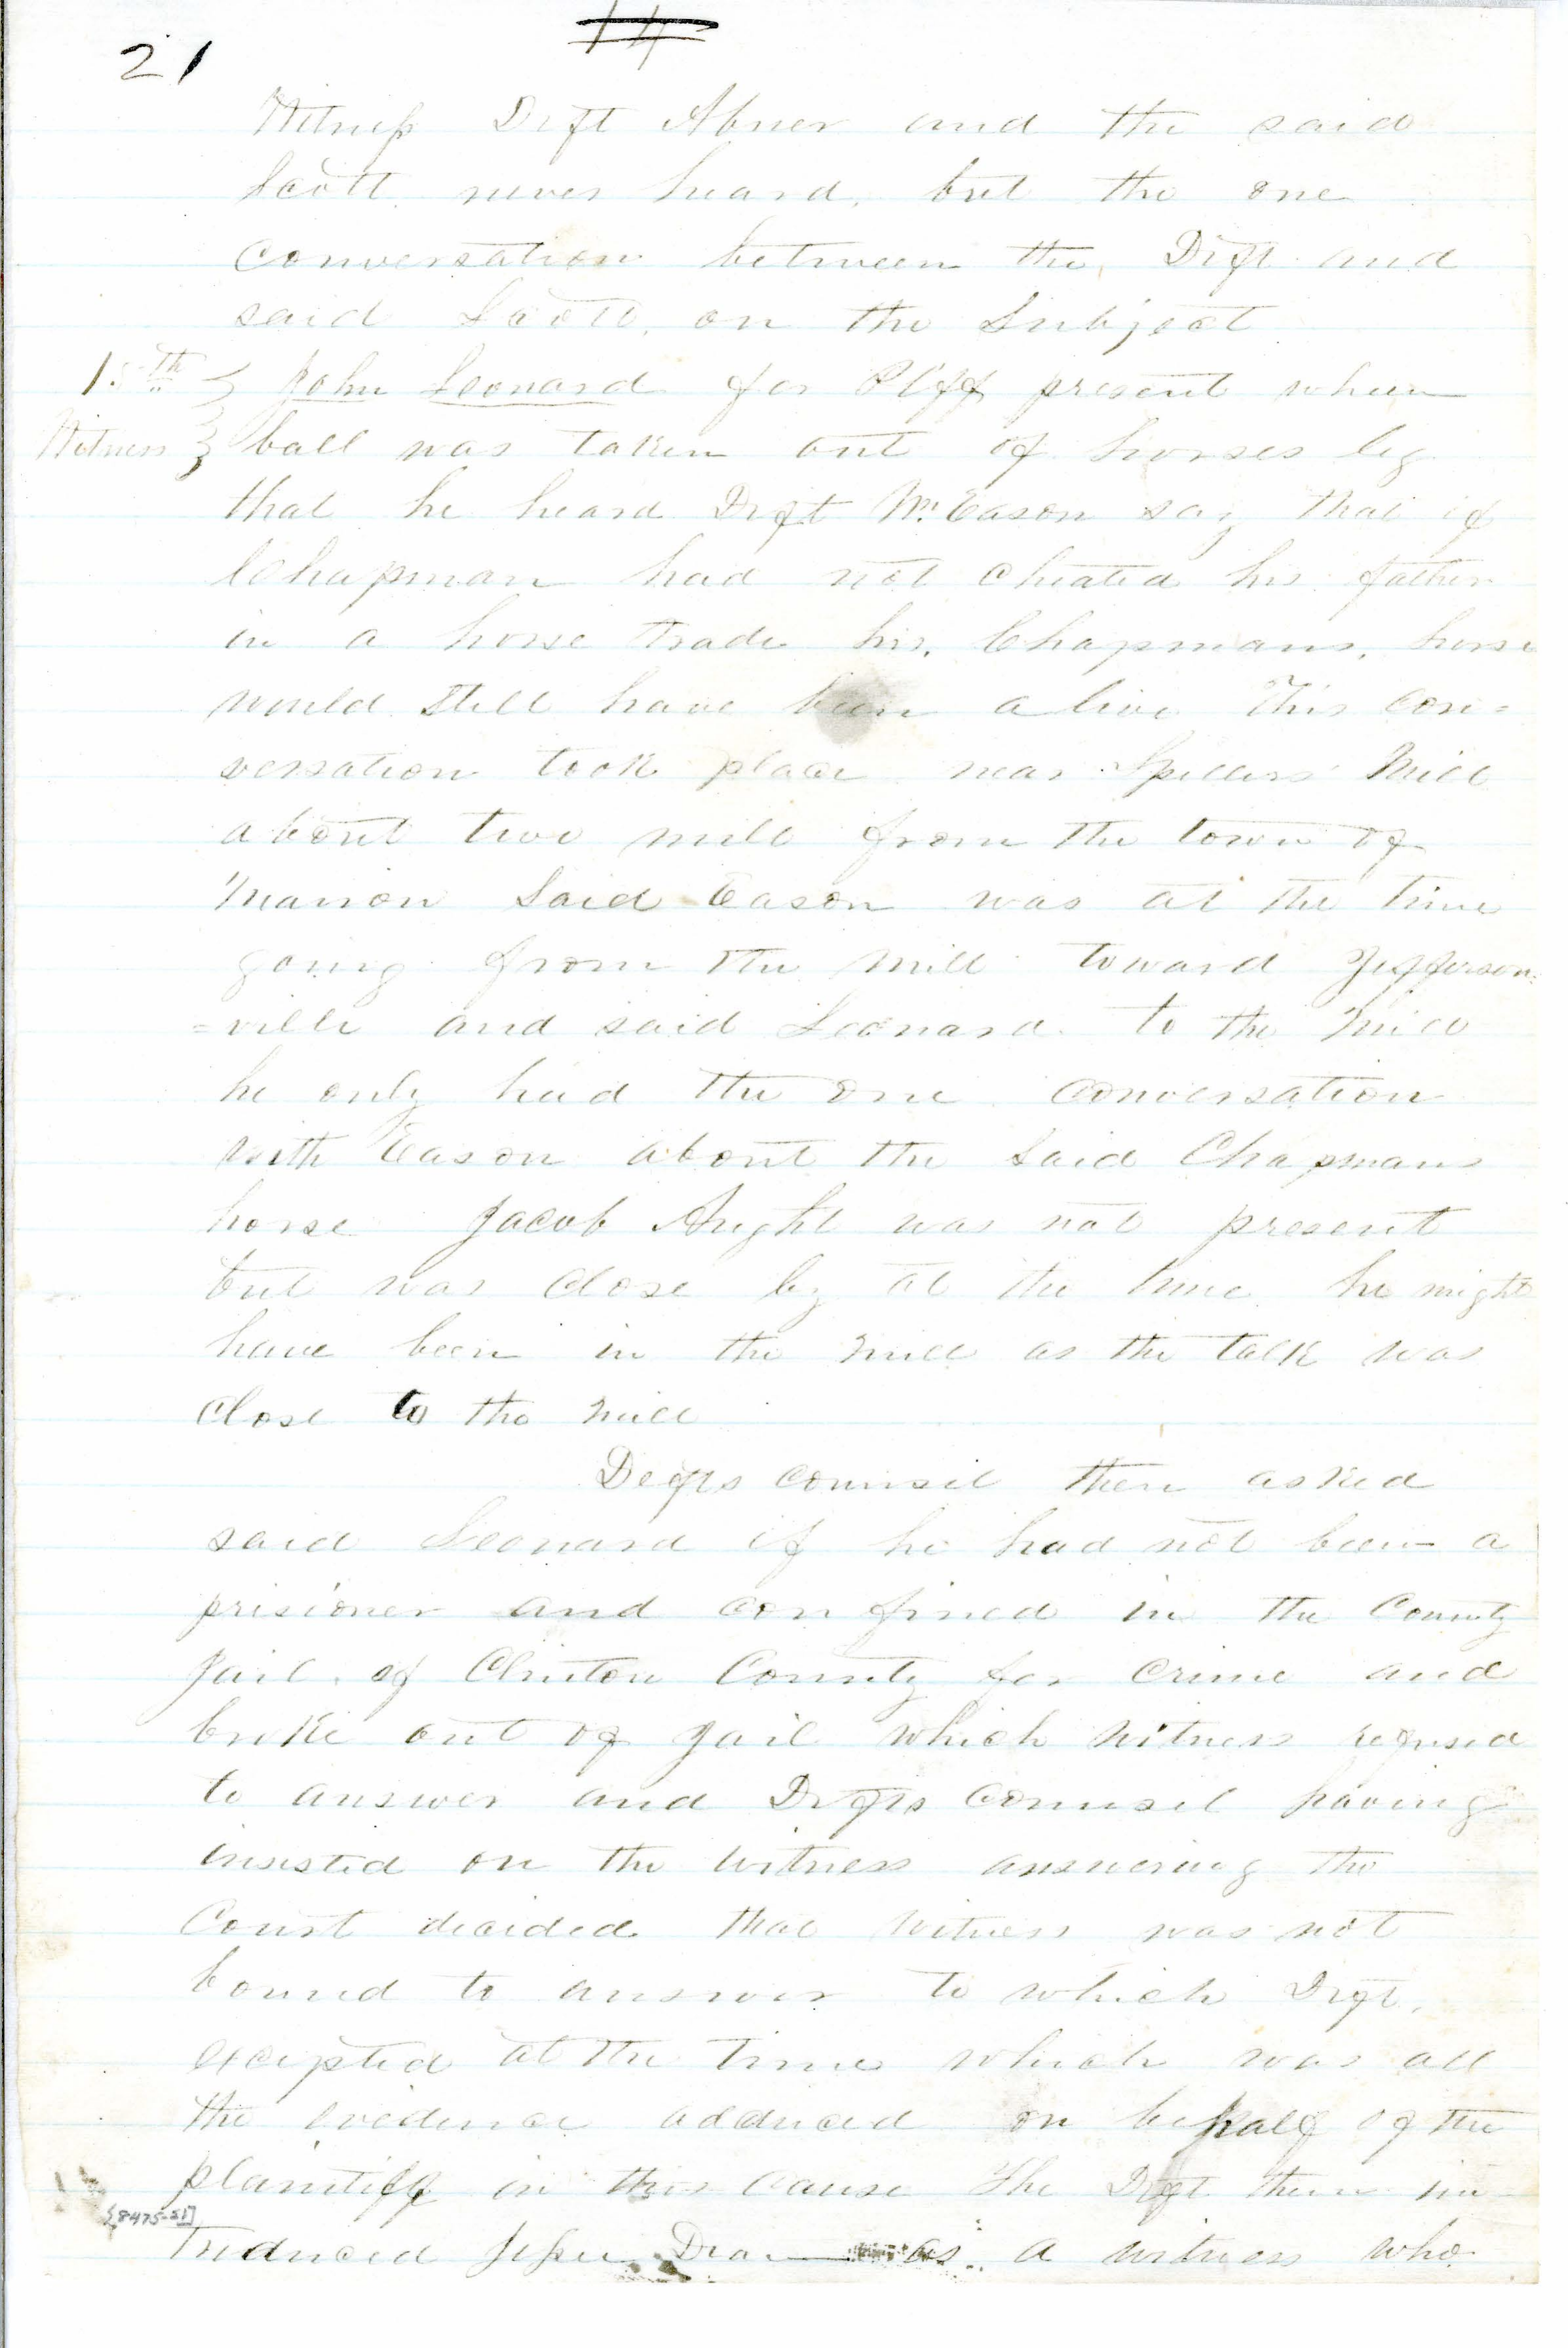 21
14
Witness Deft Abner and the said
Scott never heard, but the one
conversation between the Deft and
said Scott, on the Subject
15th } John Leonard for Plff present when
Witness } ball was taken out of horses leg
that he heard Deft Wm Eason say that if
Chapman had not cheated his father
in a horse trade his, Chapmans, horse
would still have been alive This con=
versation took place near Spillers Mill
about two mile from the town of
Marion Said Eason was at the time
going from the mill toward Jefferson=
=ville and said Leonard to the mill
he only had the one conversation
with Eason about the said Chapmans
horse Jacob was not present
but was close by at the time he might
have been in the mill as the talk was
close to the mill
Defts counsel then asked
said Leonard if he had not been a
prisioner and confined in the County
Jail of Clinton County for crime and
broke out of Jail which witness refused
to answer and Defts counsel having
insisted on the witness answering the
Court decided that witness was not
bound to answer to which Deft,
excepted at the time which was all
the evidence adduced on behalf of the
plaintiff in this cause The Deft then in=
troduced as a witness who
[8475-21]